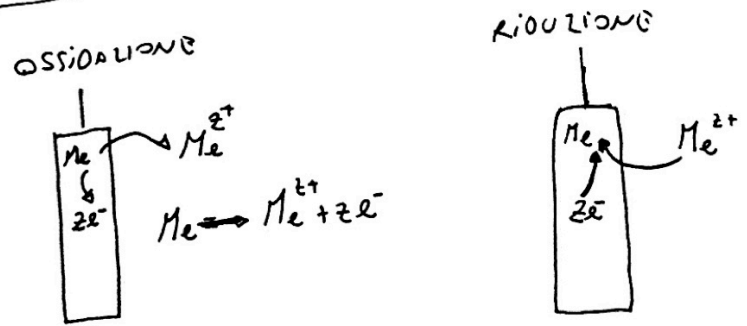 OSSIDAZIONE
Me → Me^z+
ze⁻
Me → Me^z+ + ze⁻
RIDUZIONE
Me ← Me^z+
ze⁻